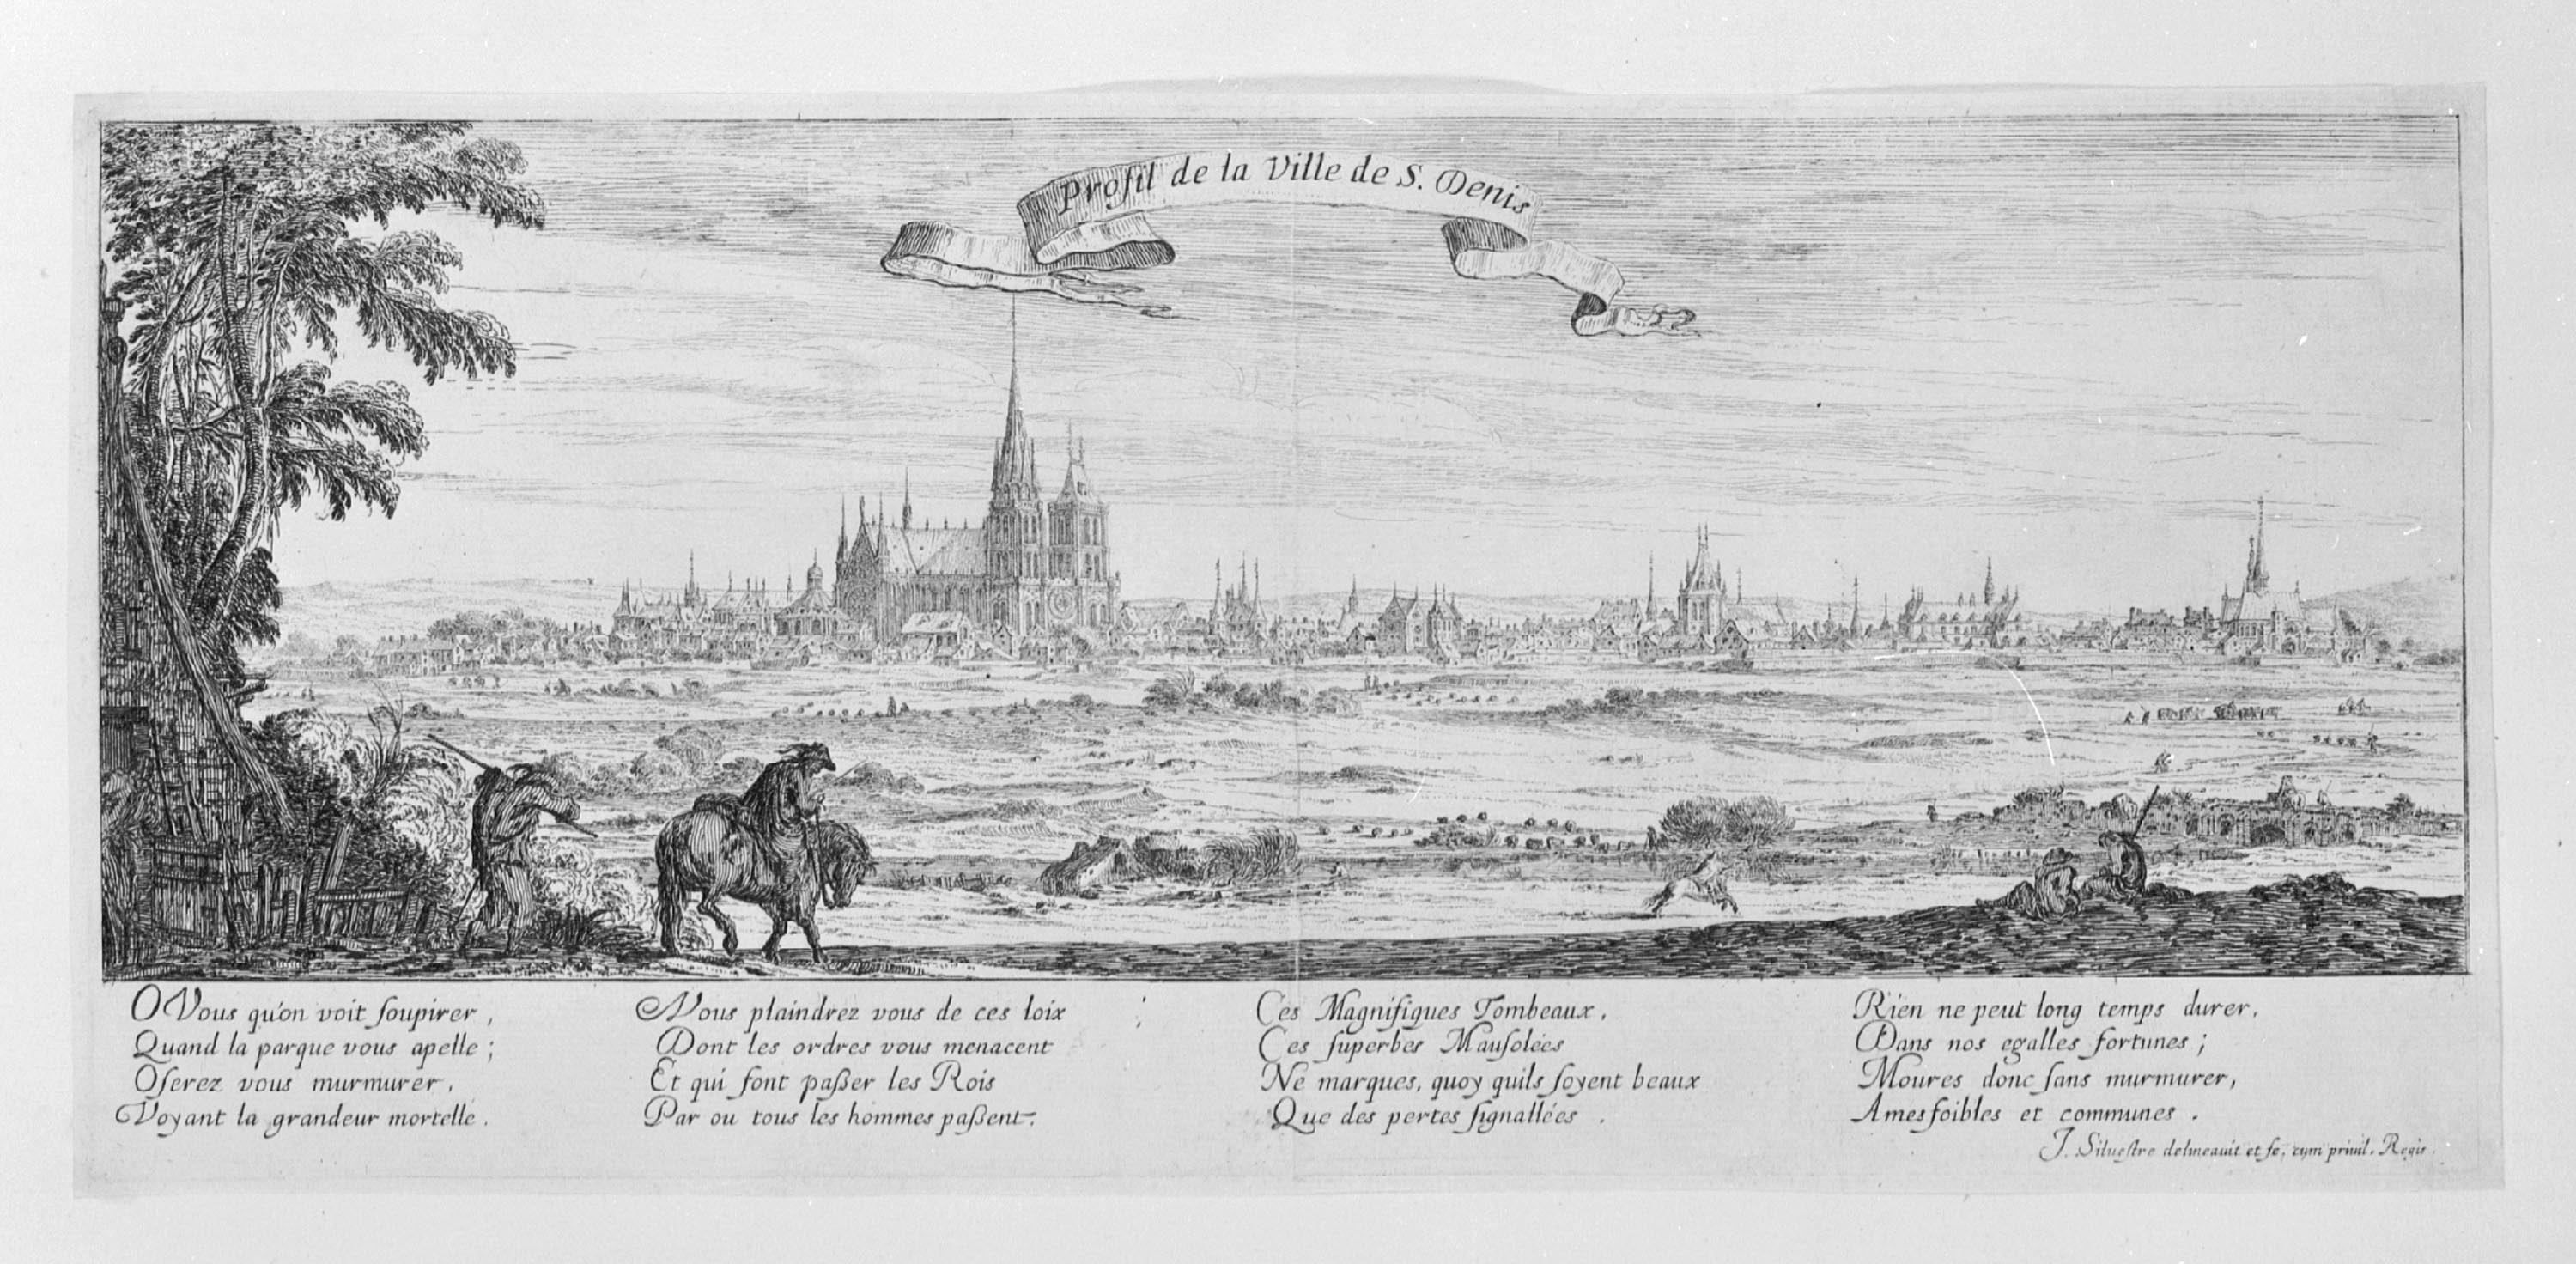 Profil de la Ville de S. Denis
O Vous qu'on voit ſoupirer,
Quand la parque vous apelle;
Oſerez vous murmurer,
Voyant la grandeur mortelle.
Vous plaindrez vous de ces loix
Dont les ordres vous menacent
Et qui font paßer les Rois
Par ou tous les hommes paßent.
Ces Magnifiques Tombeaux,
Ces ſuperbes Mauſolées
Ne marques, quoy quils ſoyent beaux
Que des pertes ſignallées.
Rien ne peut long temps durer,
Dans nos egalles fortunes;
Moures donc ſans murmurer,
Ames foibles et communes.
J. Silueſtre delineauit et fe. cum priuil. Regis.